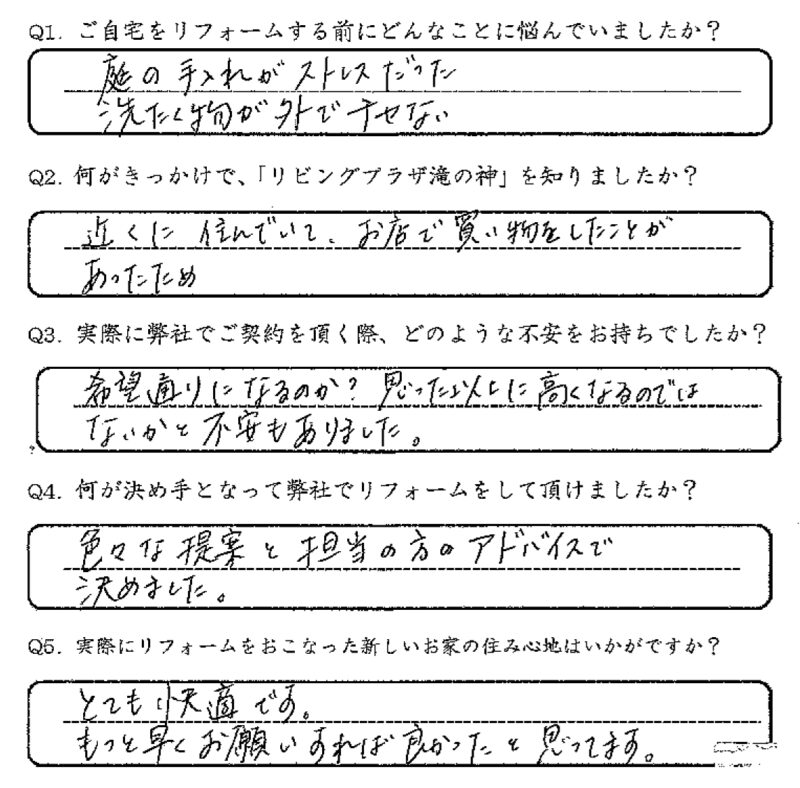 Q1. ご自宅をリフォームする前にどんなことに悩んでいましたか？
庭の手入れがストレスだった
洗たく物が外で干せない
Q2. 何がきっかけで、「リビングプラザ滝の神」を知りましたか？
近くに住んでいて、お店で買い物をしたことが
あったため
Q3. 実際に弊社でご契約を頂く際、どのような不安をお持ちでしたか？
希望通りになるのか？思った以上に高くなるのでは
ないかと不安もありました。
Q4. 何が決め手となって弊社でリフォームをして頂けましたか？
色々な提案と担当の方のアドバイスで
決めました。
Q5. 実際にリフォームをおこなった新しいお家の住み心地はいかがですか？
とても快適です。
もっと早くお願いすれば良かったと思ってます。